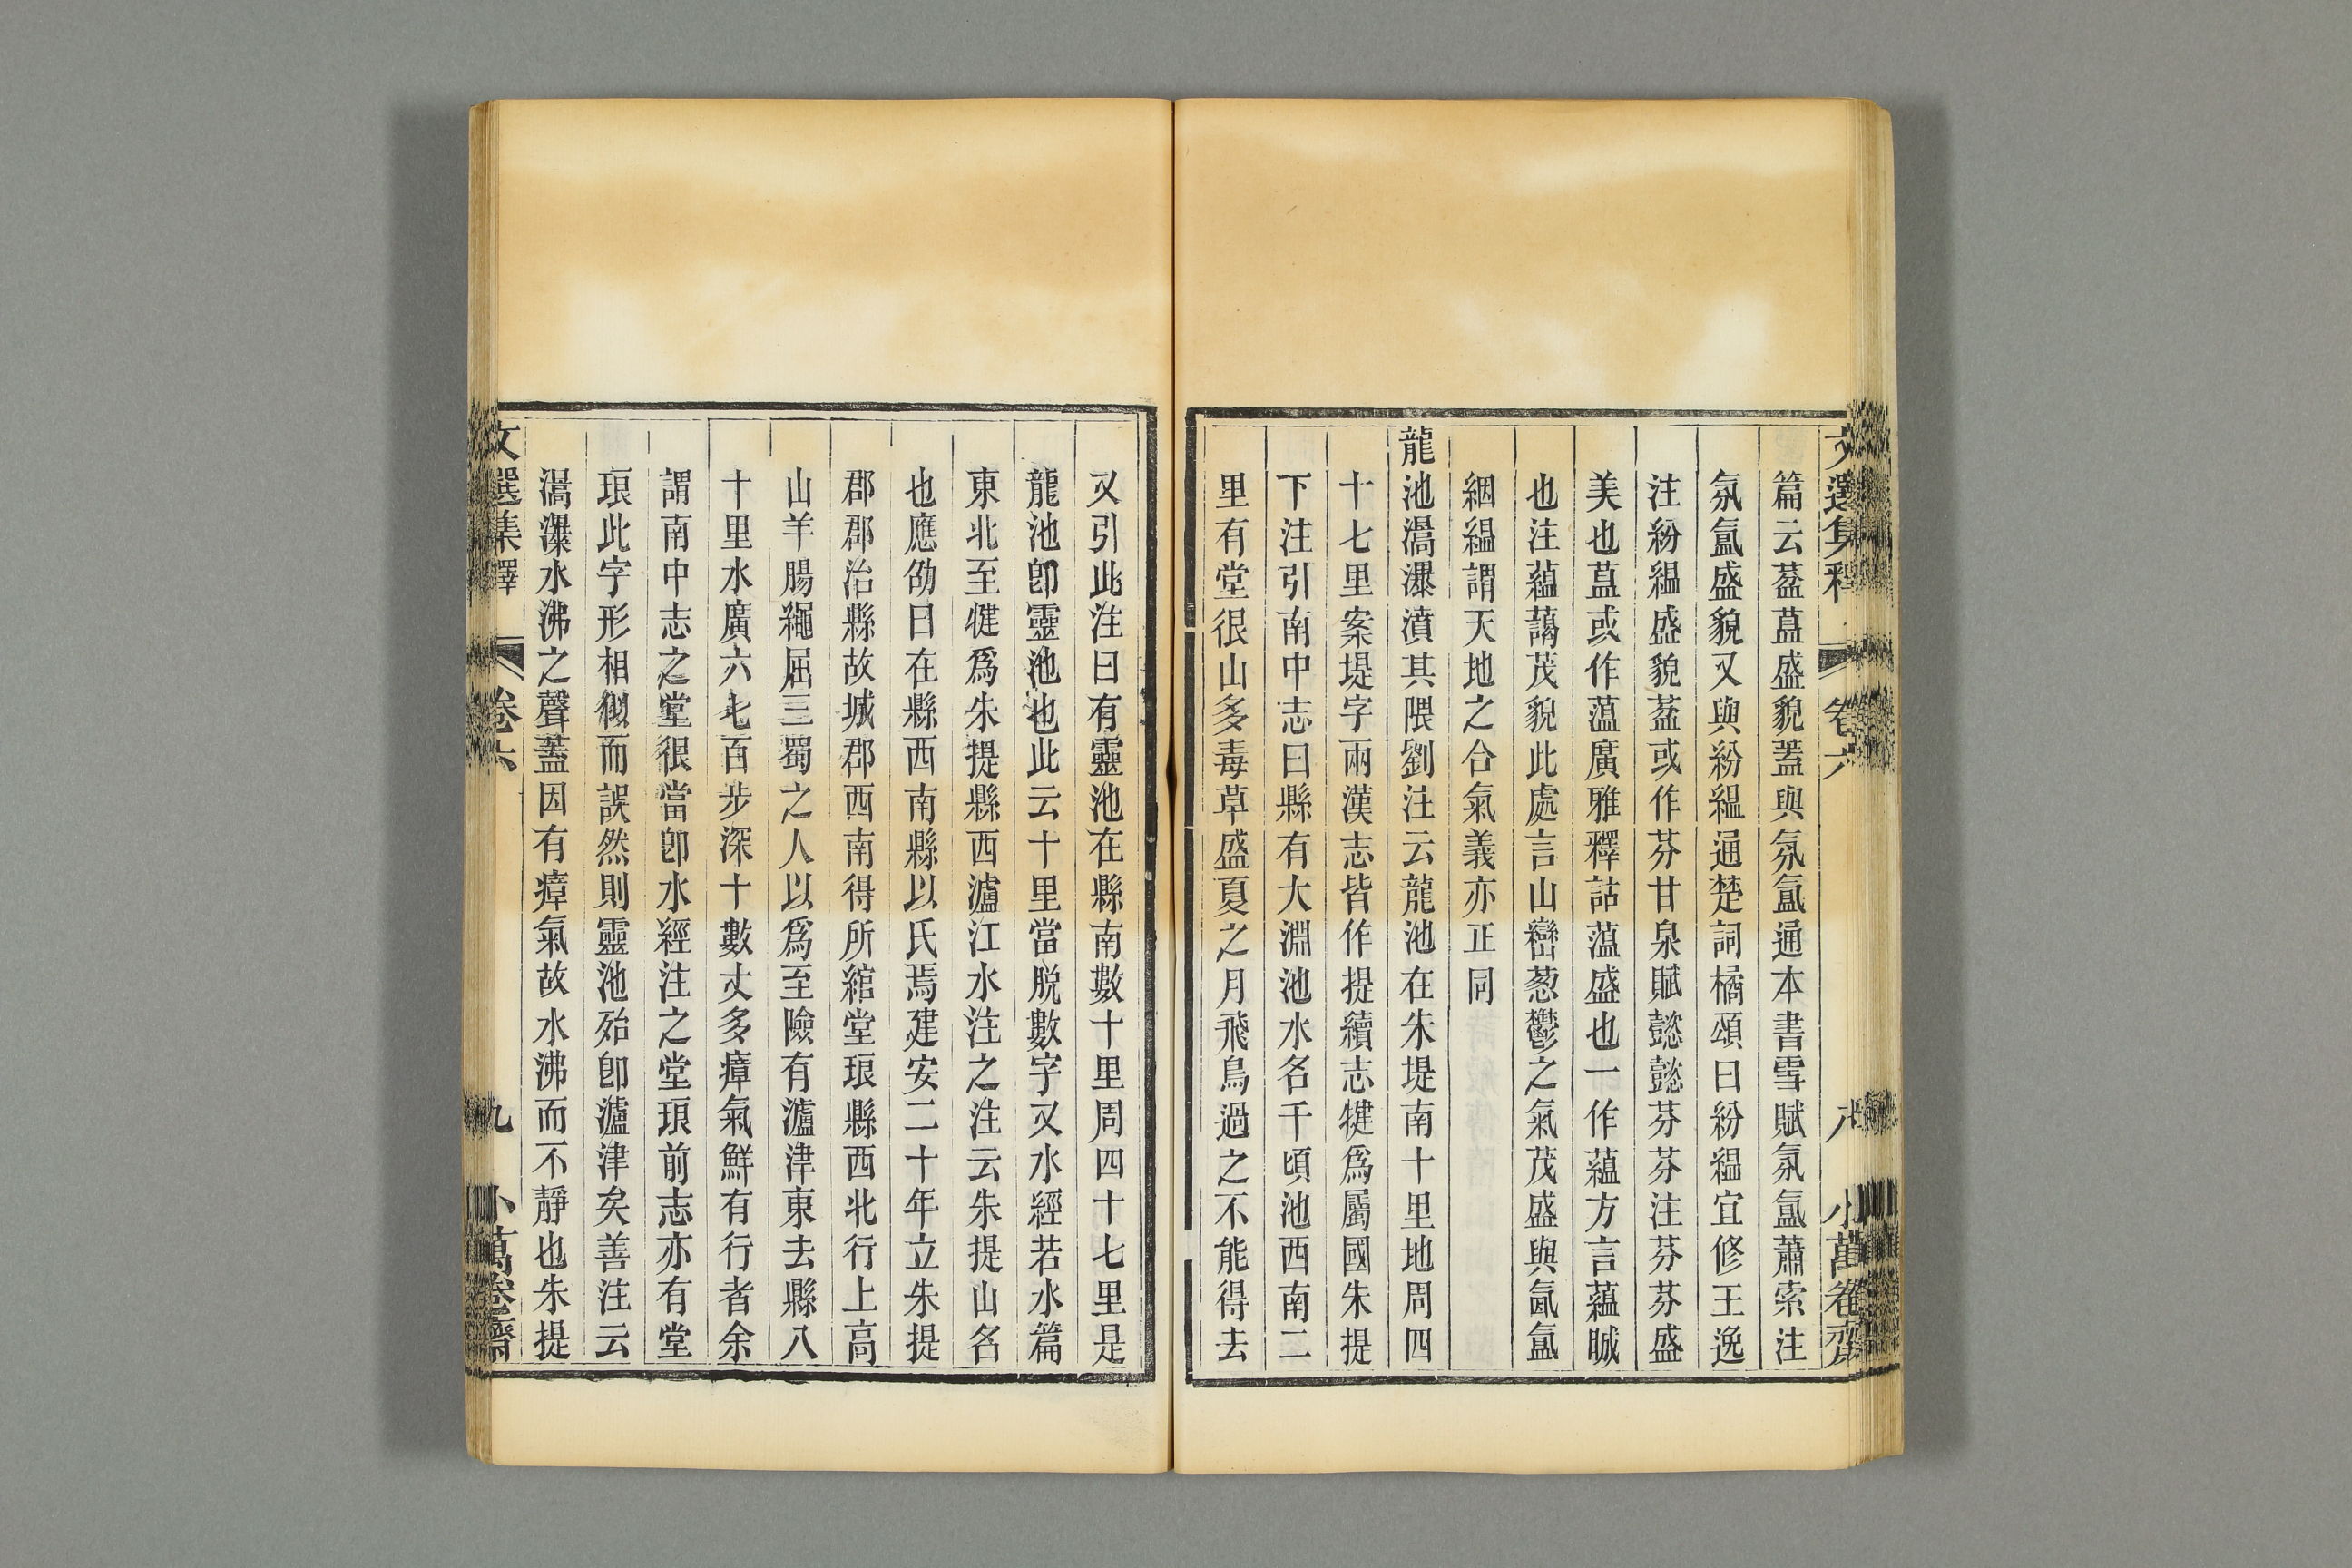 文選集釋 卷六 八 小萬卷齋
篇云葢葅盛貌蓋與氛氳通本書雪賦氛氳蕭索注
氛氳盛貌又與紛縕通楚詞橘頌曰紛縕宜修王逸
注紛縕盛貌葢或作芬甘泉賦懿懿芬芬注芬芬盛
美也葅或作薀廣雅釋詁薀盛也一作蘊方言蘊晠
也注蘊藹茂貌此處言山巒葱鬱之氣茂盛與氤氳
絪縕謂天地之合氣義亦正同
龍池瀥瀑濆其隈劉注云龍池在朱堤南十里地周四
十七里案堤字兩漢志皆作提續志犍爲屬國朱提
下注引南中志曰縣有大淵池水名千頃池西南二
里有堂很山多毒草盛夏之月飛鳥過之不能得去
又引此注曰有靈池在縣南數十里周四十七里是
龍池卽靈池也此云十里當脱數字又水經若水篇
東北至犍爲朱提縣西瀘江水注之注云朱提山名
也應劭曰在縣西南縣以氏焉建安二十年立朱提
郡郡治縣故城郡西南得所綰堂琅縣西北行上高
山羊腸繩屈三蜀之人以爲至險有瀘津東去縣八
十里水廣六七百步深十數丈多瘴氣鮮有行者余
謂南中志之堂很當卽水經注之堂琅前志亦有堂
琅此字形相𠈓而誤然則靈池殆卽瀘津矣善注云
瀥瀑水沸之聲蓋因有瘴氣故水沸而不靜也朱提
文選集釋 卷六 九 小萬卷齋